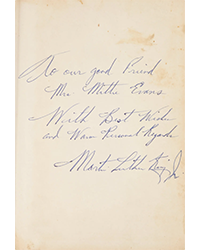 To our good Friend
Mrs. Mettie Evans
With Best Wishes
and Warm Personal Regards
Martin Luther King Jr.